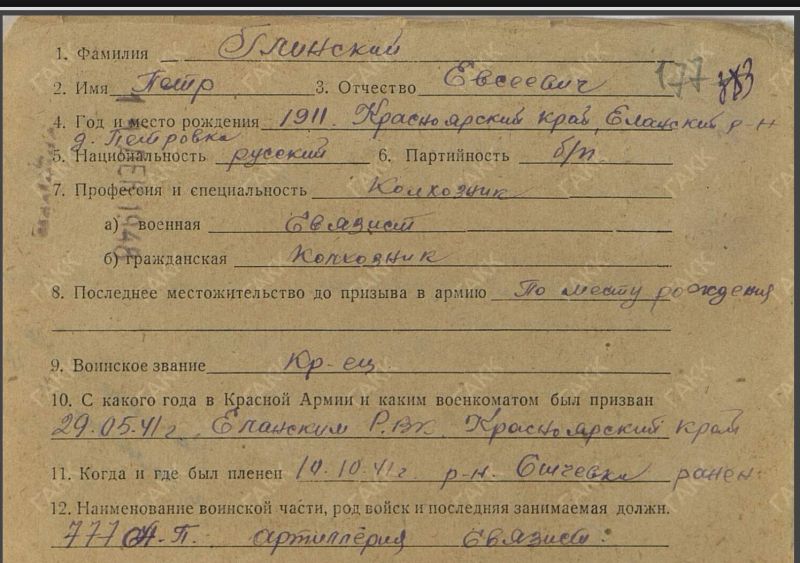 1. Фамилия Глинский
2. Имя Петр 3. Отчество Евсеевич 177
4. Год и место рождения 1911. Красноярский край, Еланский р-н
д. Петровка
5. Национальность русский 6. Партийность б/п
7. Профессия и специальность Колхозник
а) военная Связист
б) гражданская Колхозник
8. Последнее местожительство до призыва в армию По месту рождения
9. Воинское звание Кр-ец
10. С какого года в Красной Армии и каким военкоматом был призван
29.05.41 г. Еланским Р.В.К. Красноярский край
11. Когда и где был пленен 10.10.41 г. р-н. ранен
12. Наименование воинской части, род войск и последняя занимаемая должн.
777 А.П. артиллерия связист.